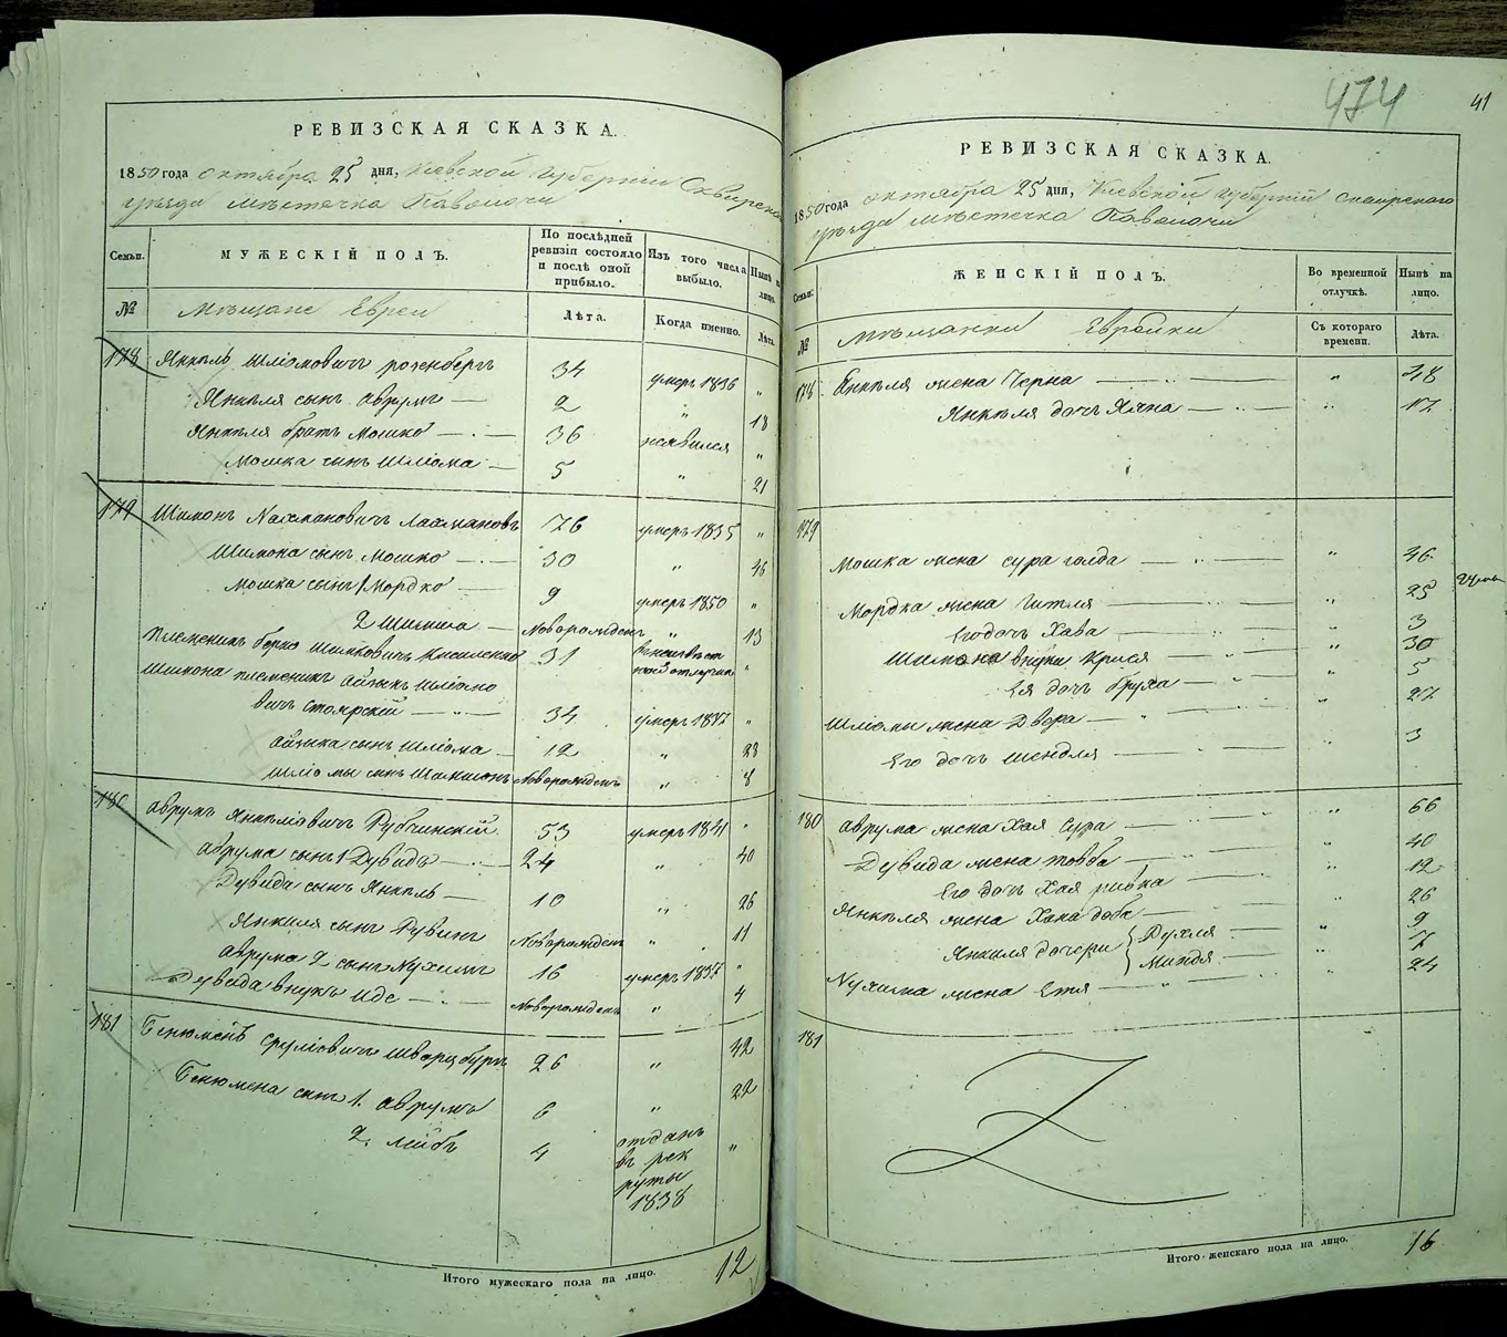 474
41
РЕВИЗСКАЯ СКАЗКА.
1850 года октября 25 дня, Киевской Губернии Сквирскаго
уезда местечка Паволочи
Семьи.
МУЖЕСКІЙ ПОЛЪ.
По послѣдней ревизіи состояло и послѣ оной прибыло.
Изъ того числа выбыло.
Нынѣ на лицо.
№
Мѣщане Евреи
Лѣта.
Когда именно.
Лѣта.
178 Янкель Шліомовичъ розенбергъ 34 умеръ 1836 "
Янкеля сынъ Аврумъ — 2 " 18
Янкеля братъ Мошко — 36 неявился "
Мошка сынъ Шліома — 5 " 21
179 Шимонъ Нахмановичъ Лахмановъ 76 умеръ 1835 "
Шимона сынъ Мошко — 30 " 46
Мошка сынъ 1 Мордко — 9 умеръ 1850 "
2 — Новорожденъ " 13
Племеникъ Борко 31 "
Шимона племеникъ Айзикъ Шліомо
вичъ Столярскій — 34 умеръ 1847 "
Айзика сынъ Шліома — 12 " 28
Шліомы сынъ Новорожденъ " 8
180 Аврумъ Янкеліовичъ Рубчинскій 53 умеръ 1841 "
Аврума сынъ 1 Дувидъ — 24 " 40
Дувида сынъ Янкель — 10 " 26
Янкеля сынъ Рувинъ Новорожденъ " 11
Аврума 2 сынъ Нухимъ 16 умеръ 1837 "
Дувида внукъ Иде — Новорожденъ " 4
181 Бенюменъ Сруліовичъ Шварцбургъ 26 " 42
Бенюмена сынъ 1. Аврумъ 6 " 22
2. Лейбъ 4 отданъ "
въ рек
руты
1838
Итого мужескаго пола на лицо. 12
РЕВИЗСКАЯ СКАЗКА.
1850 года октября 25 дня, Киевской Губерній сквирскаго
уезда местечка Паволочи
Семьи:
ЖЕНСКІЙ ПОЛЪ.
Во временной отлучкѣ.
Нынѣ на лицо.
№
Мѣщанки Еврейки
Съ котораго времени.
Лѣта.
178 Янкеля жена Черна — " 48
Янкеля дочь Хана — " 17
179
Мошка жена сура голда — " 46
Мордка жена Гитля — " 25
Его дочь Хава — " 3
Шимона внука Крися — " 30
Ея дочь Бруха — " 5
Шліомы жена Двора — " 27
Его дочь шендля — " 3
180 Аврума жена Хая Сура — " 66
Дувида жена товба — " 40
Его дочь Хая ривка — " 12
Янкеля жена Хана доба — " 26
Янкеля дочери { Рухля — " 9
Миндя — " 7
Нухима жена Етя — " 24
181
Итого женскаго пола на лицо. 16